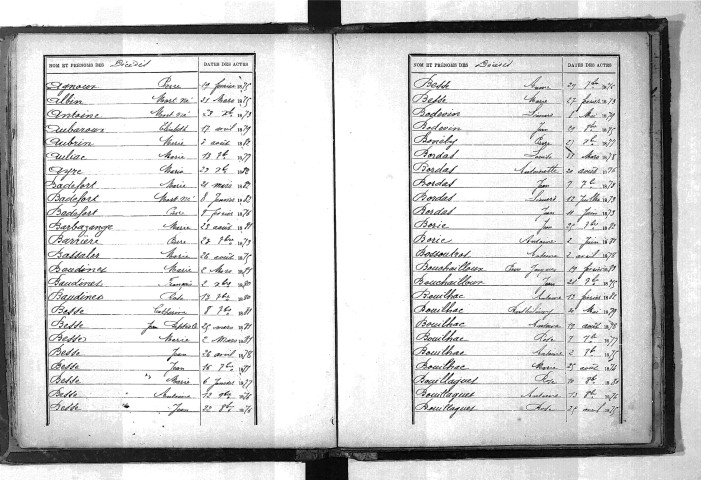 NOM ET PRÉNOMS DES Décédés DATES DES ACTES
Agnoux Pierre 19 février 1875
Albin Mort né 21 Mars 1875
Antoine Mort né 28 1873
Aubaroux Elisabeth 17 avril 1879
Aubrin Marie 3 août 1882
Auliac Marie 13 8bre 1877
Ayre Marie 22 1882
Badefort Marie 21 mars 1882
Badefort Mort né 8 Janvier 1882
Badefort Pierre février 1876
Barbazange Marie 23 août 1881
Barrière Pierre 1873
Bassaler Marie 26 août 1875
Baudones Marie 2 Mars 1881
Baudones François 2 1880
Baudines Rose 13 1880
Besse Catherine 8 1881
Besse Jean Baptiste 25 mars 1881
Besse Marie 2 Mars 1881
Besse Jean 26 avril 1878
Besse Jean 16 1881
Besse Marie 6 Janvier 1877
Besse Antoine 12 1876
Besse Jean 22 8bre 1876
NOM ET PRÉNOMS DES Décédés DATES DES ACTES
Besse Anne 29 1875
Besse Marie 27 février 1873
Bodevin Léonard 8 Mai 1879
Bodevin Jean 29 1875
Pierre 27 1877
Bordas Louise 28 Mars 1878
Bordas Antoinette 20 août 1876
Bordas Jean 7 1878
Bordas Léonard 12 Juillet 1873
Bordas Jean 11 Juin 1873
Borie Jean 25 1882
Borie Antoine 2 Juin 1881
Bossoutrot Antoine 2 avril 1878
Bouchailloux Pierre Jacques 19 février 1881
Bouchailloux Jean 21 1875
Bouilhac Antoine 13 février 1882
Bouilhac 21 Mai 1879
Bouilhac Antoine 19 août 1878
Bouilhac Rose 7 1877
Bouilhac Antoine 2 1875
Bouilhac Marie 25 août 1881
Bouillaguet Rose 10 8bre 1881
Bouillaguet Antoine 13 8bre 1876
Bouillaguet Rose 27 avril 1875